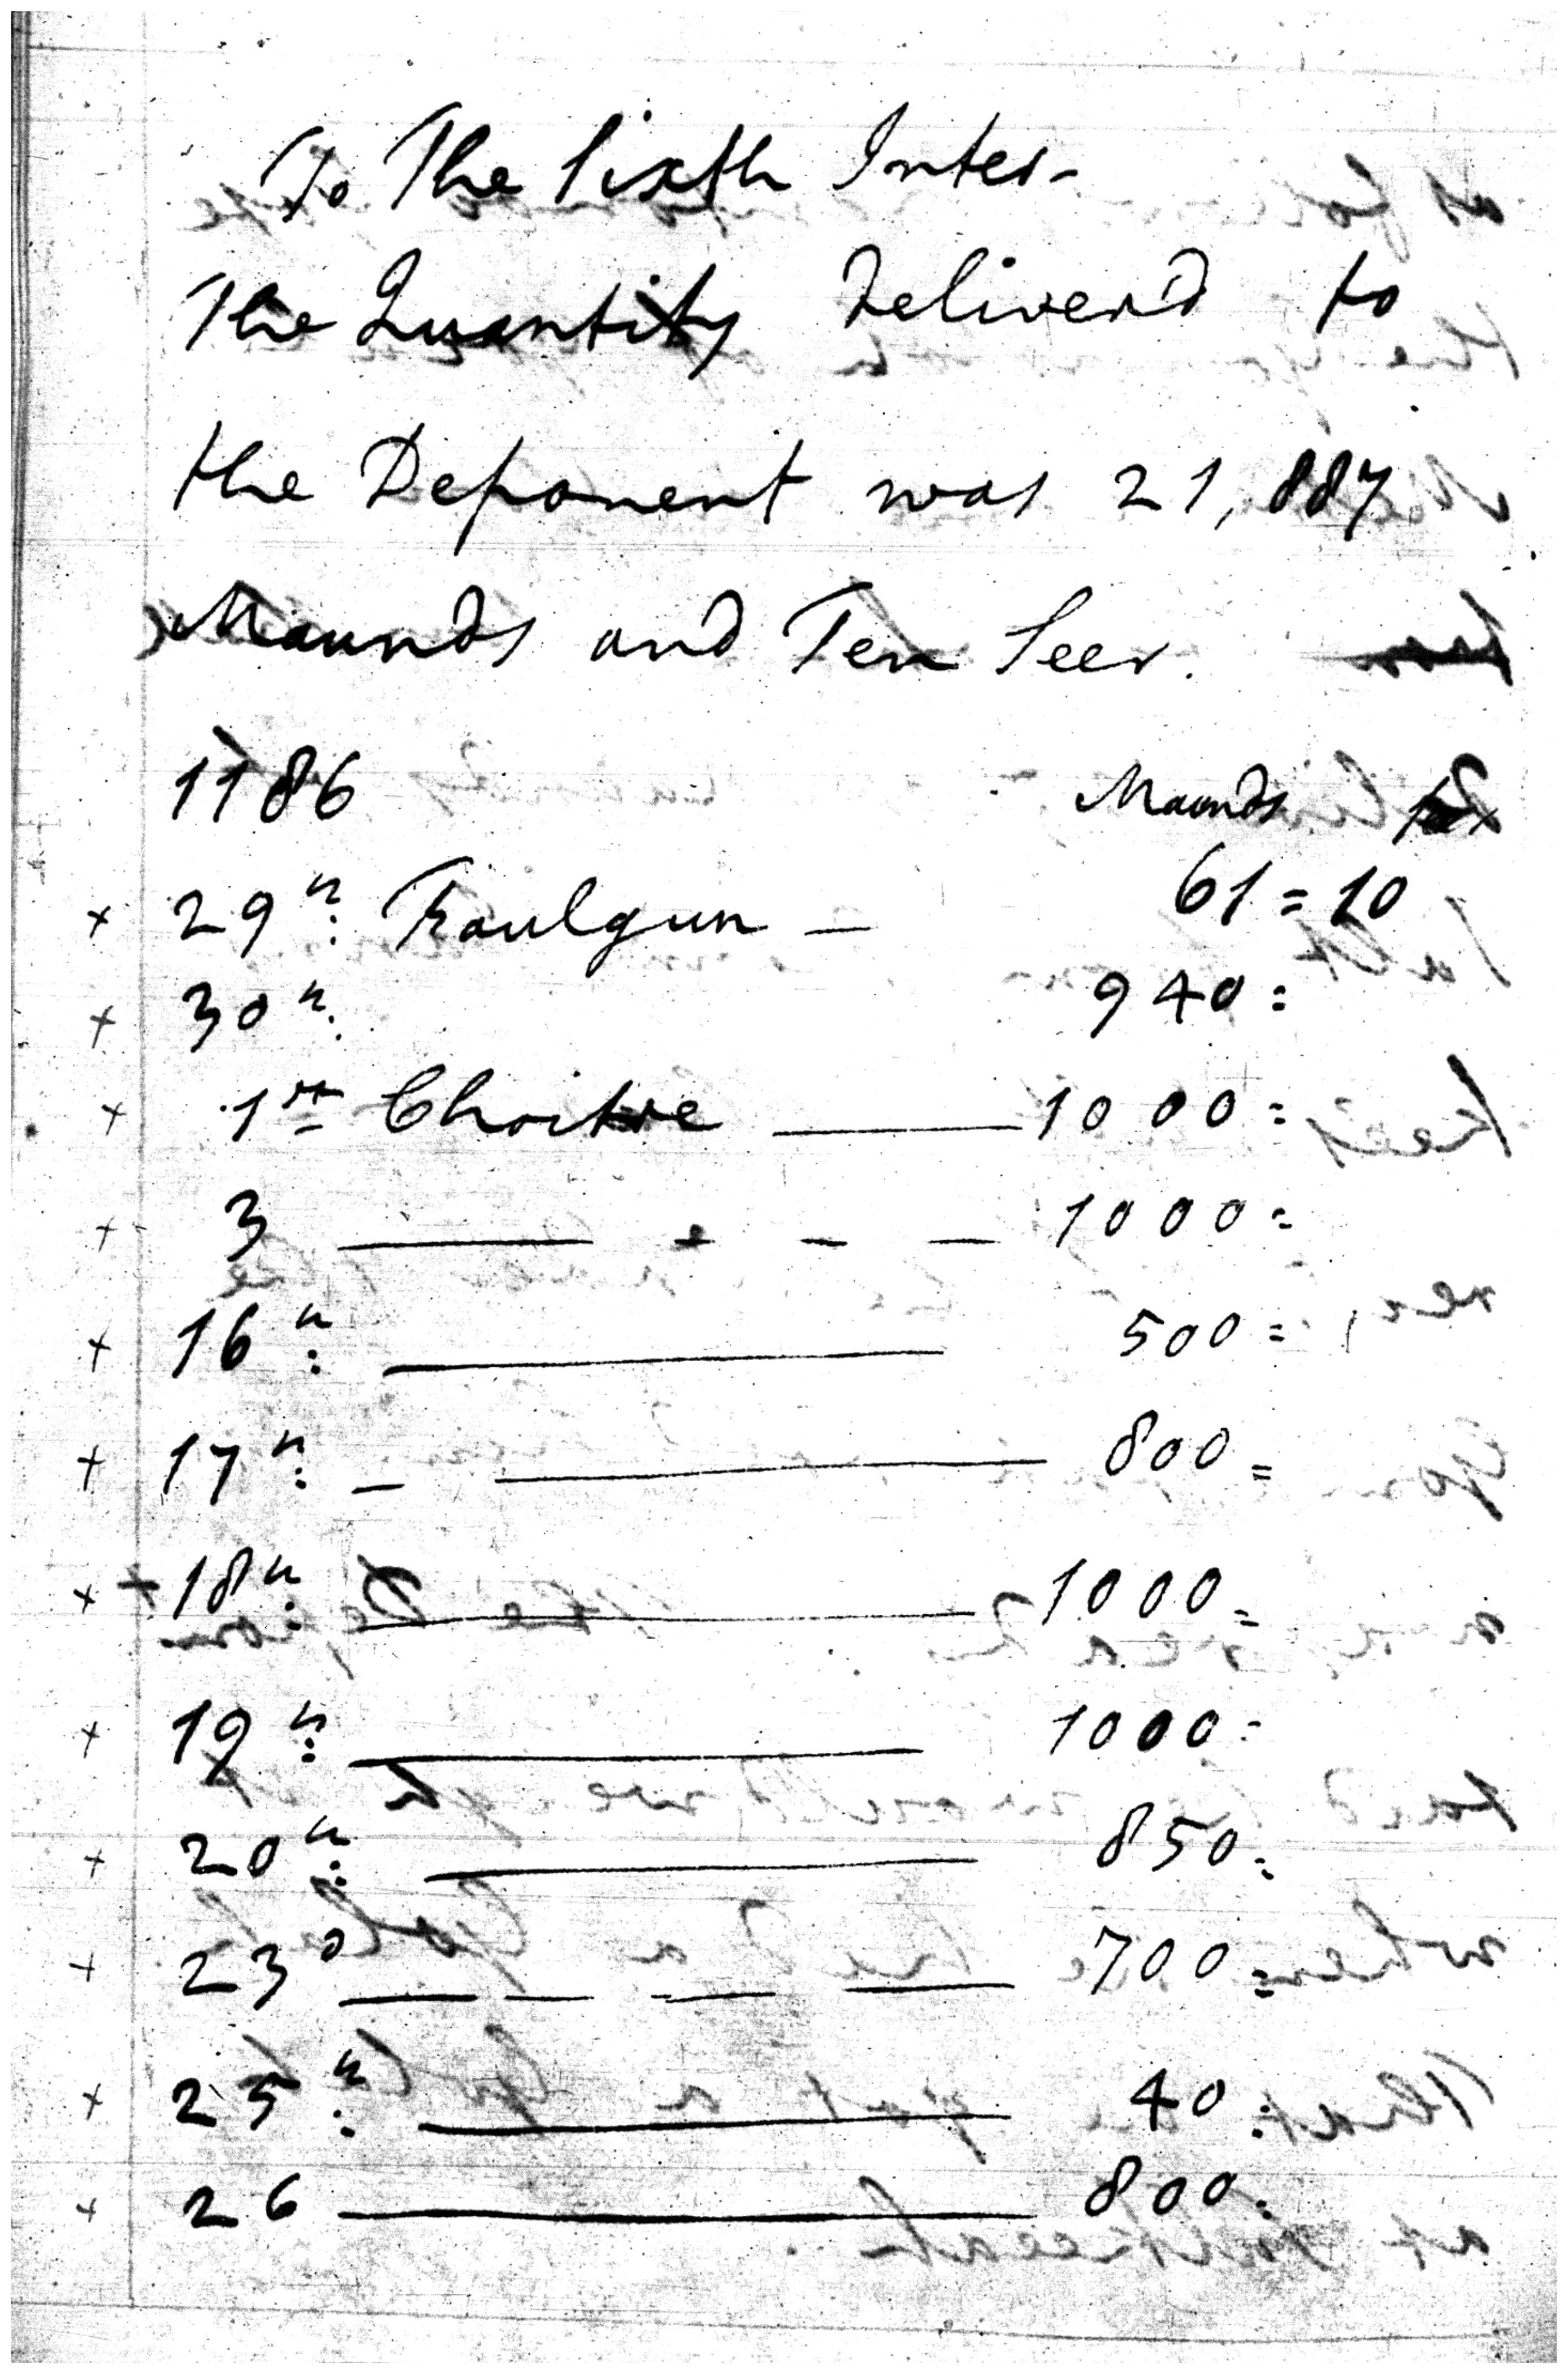 To The Sixth Inter-
The Quantity Deliver'd to
the Deponent was 21,887
Maunds and Ten Seer.
1186 Maunds
+ 29th: Faulgun — 61 = 10
+ 30th: 940 =
+ 1st Choitre — 1000 =
+ 3 — - - — 1000 =
+ 16th: — 500 =
+ 17th: — — 800 =
+ 18th: — 1000 =
+ 19th: — 1000 =
+ 20th: — 850 =
+ 23d — — — — 700 =
+ 25th: — 40 =
+ 26 — 800 =